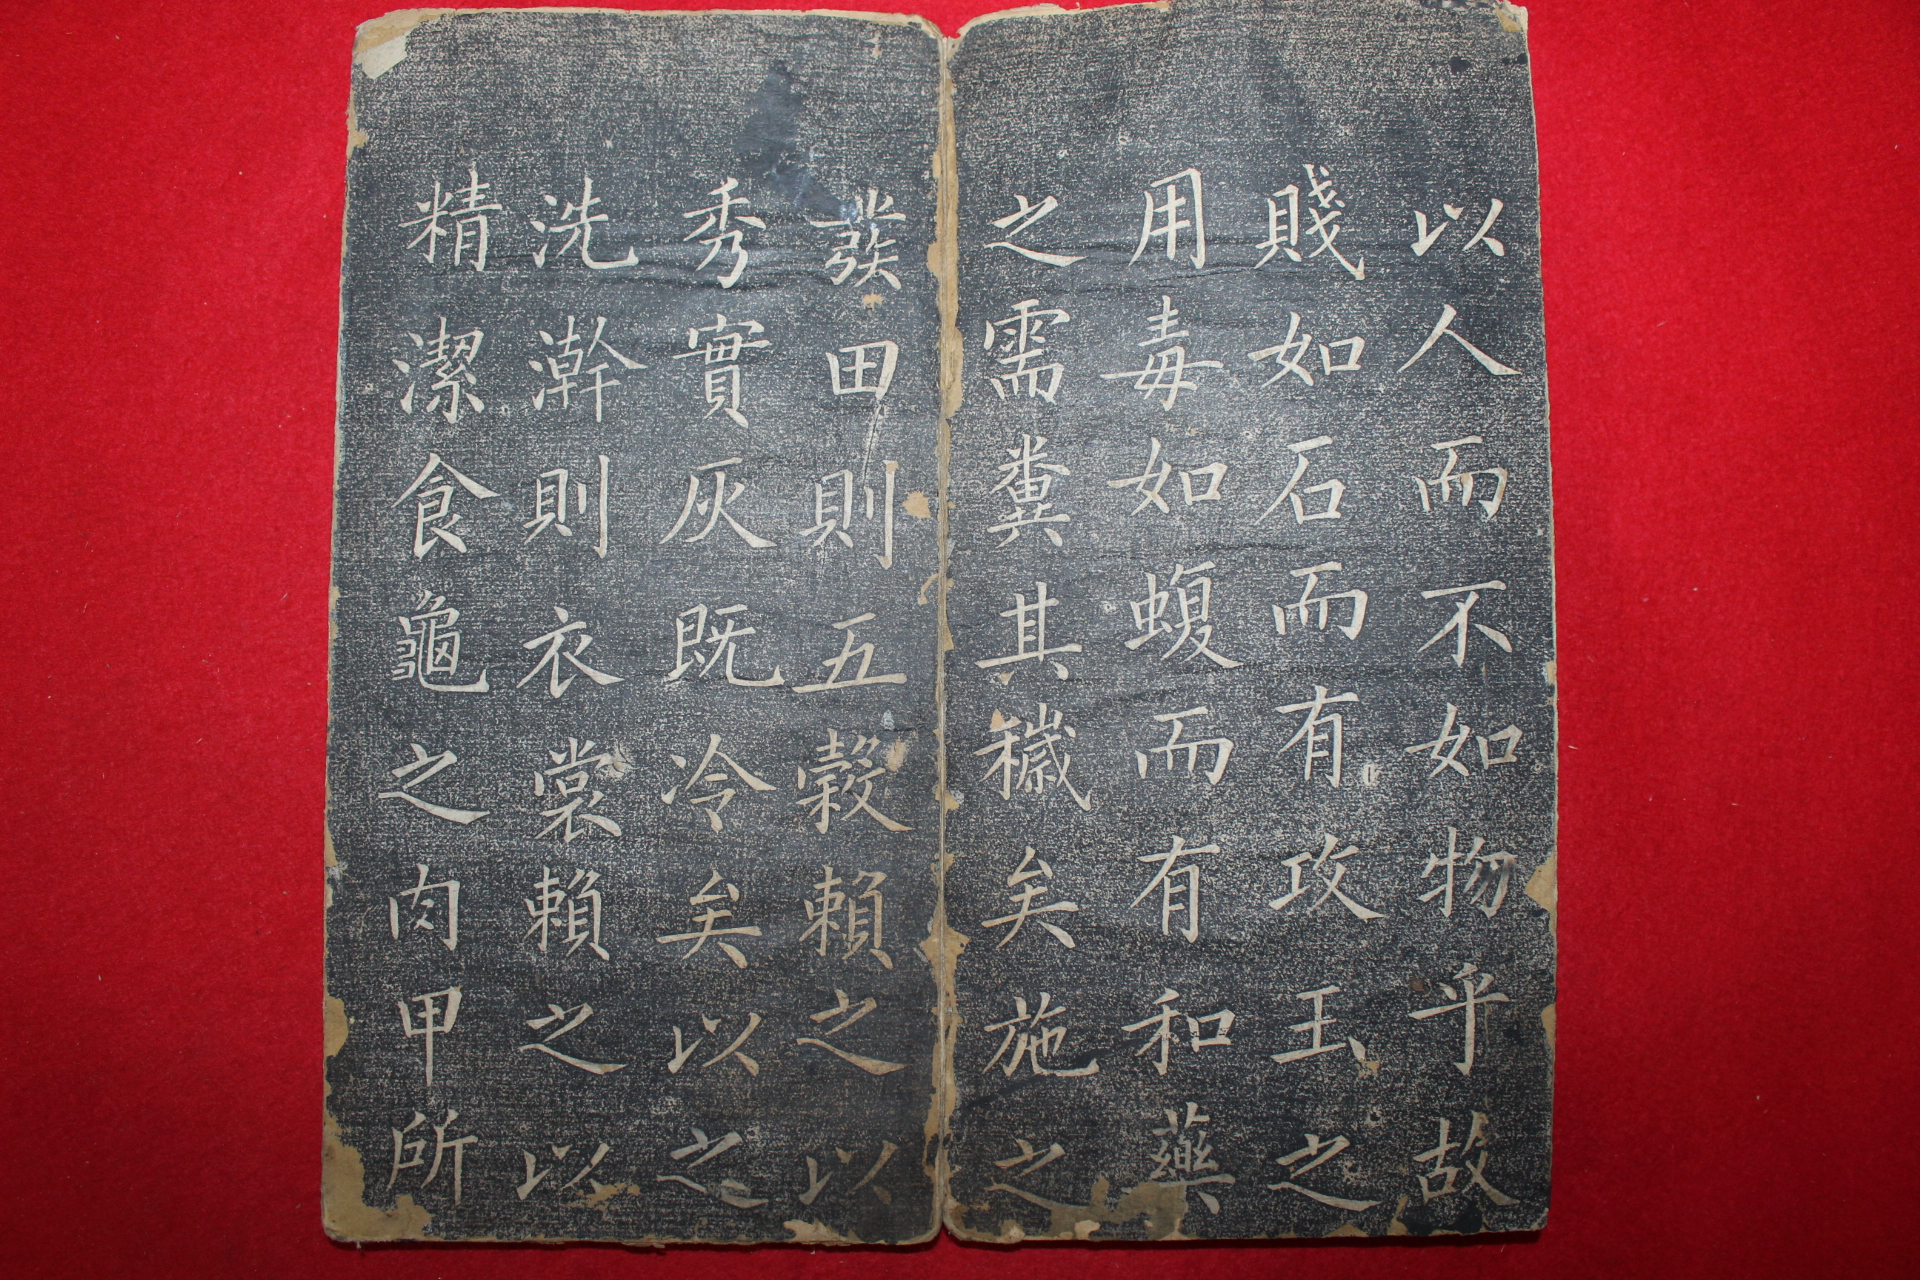 以人而不如物乎故
賤如石而有攻玉之
用毒如蝮而有和藥
之需糞其穢矣施之
發田則五穀賴之以
秀實灰既冷矣以之
洗澣則衣裳賴之以
精潔食龜之肉甲所